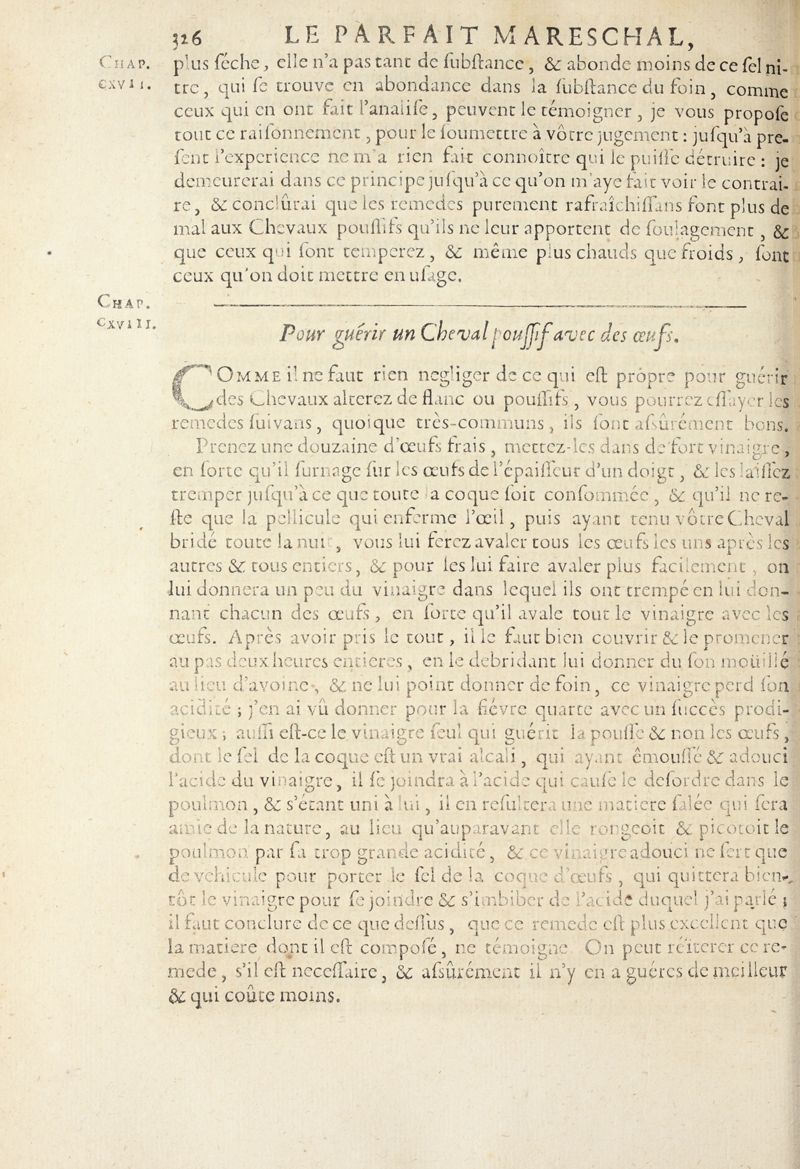 326 LE PARFAIT MARESCHAL,
CHAP. CXVII.
plus ſéche, elle n'a pas tant de ſubſtance, & abonde moins de ce ſel ni-
tre, qui ſe trouve en abondance dans la ſubſtance du foin, comme
ceux qui en ont fait l'analiſe, peuvent le témoigner, je vous propoſe
tout ce raiſonnement, pour le ſoumettre à vôtre jugement : juſqu'à pre-
ſent l'experience ne m'a rien fait connoître qui le puiſſe détruire : je
demeurerai dans ce principe juſqu'à ce qu'on m'aye fait voir le contrai-
re, & conclûrai que les remedes purement rafraîchiſſans font plus de
mal aux Chevaux pouſſifs qu'ils ne leur apportent de ſoulagement, &
que ceux qui ſont temperez, & même plus chauds que froids, ſont
ceux qu'on doit mettre en uſage.
CHAP. CXVIII.
Pour guérir un Cheval pouſſif avec des œufs.
COMME il ne faut rien negliger de ce qui eſt propre pour guérir
des Chevaux alterez de flanc ou pouſſifs, vous pourrez eſſayer les
remedes ſuivans, quoique très-communs, ils ſont aſsûrément bons.
Prenez une douzaine d'œufs frais, mettez-les dans de fort vinaigre,
en ſorte qu'il ſurnage ſur les œufs de l'épaiſſeur d'un doigt, & les laiſſez
tremper juſqu'à ce que toute la coque ſoit conſommée, & qu'il ne re-
ſte que la pellicule qui enferme l'œil, puis ayant tenu vôtre Cheval
bridé toute la nuit, vous lui ferez avaler tous les œufs les uns après les
autres & tous entiers, & pour les lui faire avaler plus facilement, on
lui donnera un peu du vinaigre dans lequel ils ont trempé en lui don-
nant chacun des œufs, en ſorte qu'il avale tout le vinaigre avec les
œufs. Après avoir pris le tout, il le faut bien couvrir & le promener
au pas deux heures entieres, en le debridant lui donner du ſon moüillé
au lieu d'avoine, & ne lui point donner de foin, ce vinaigre perd ſon
acidité ; j'en ai vû donner pour la fiévre quarte avec un ſuccès prodi-
gieux ; auſſi eſt-ce le vinaigre ſeul qui guérit la pouſſe & non les œufs,
dont le ſel de la coque eſt un vrai alcali, qui ayant émouſſé & adouci
l'acide du vinaigre, il ſe joindra à l'acide qui cauſe le deſordre dans le
poulmon, & s'étant uni à lui, il en reſultera une matiere ſalée qui ſera
amie de la nature, au lieu qu'auparavant elle rongeoit & picotoit le
poulmon par ſa trop grande acidité, & ce vinaigre adouci ne ſert que
de vehicule pour porter le ſel de la coque d'œufs, qui quittera bien-
tôt le vinaigre pour ſe joindre & s'imbiber de l'acide duquel j'ai parlé ;
il faut conclure de ce que deſſus, que ce remede eſt plus excellent que
la matiere dont il eſt compoſé, ne témoigne. On peut réïterer ce re-
mede, s'il eſt neceſſaire, & aſsûrément il n'y en a guéres de meilleur
& qui coûte moins.